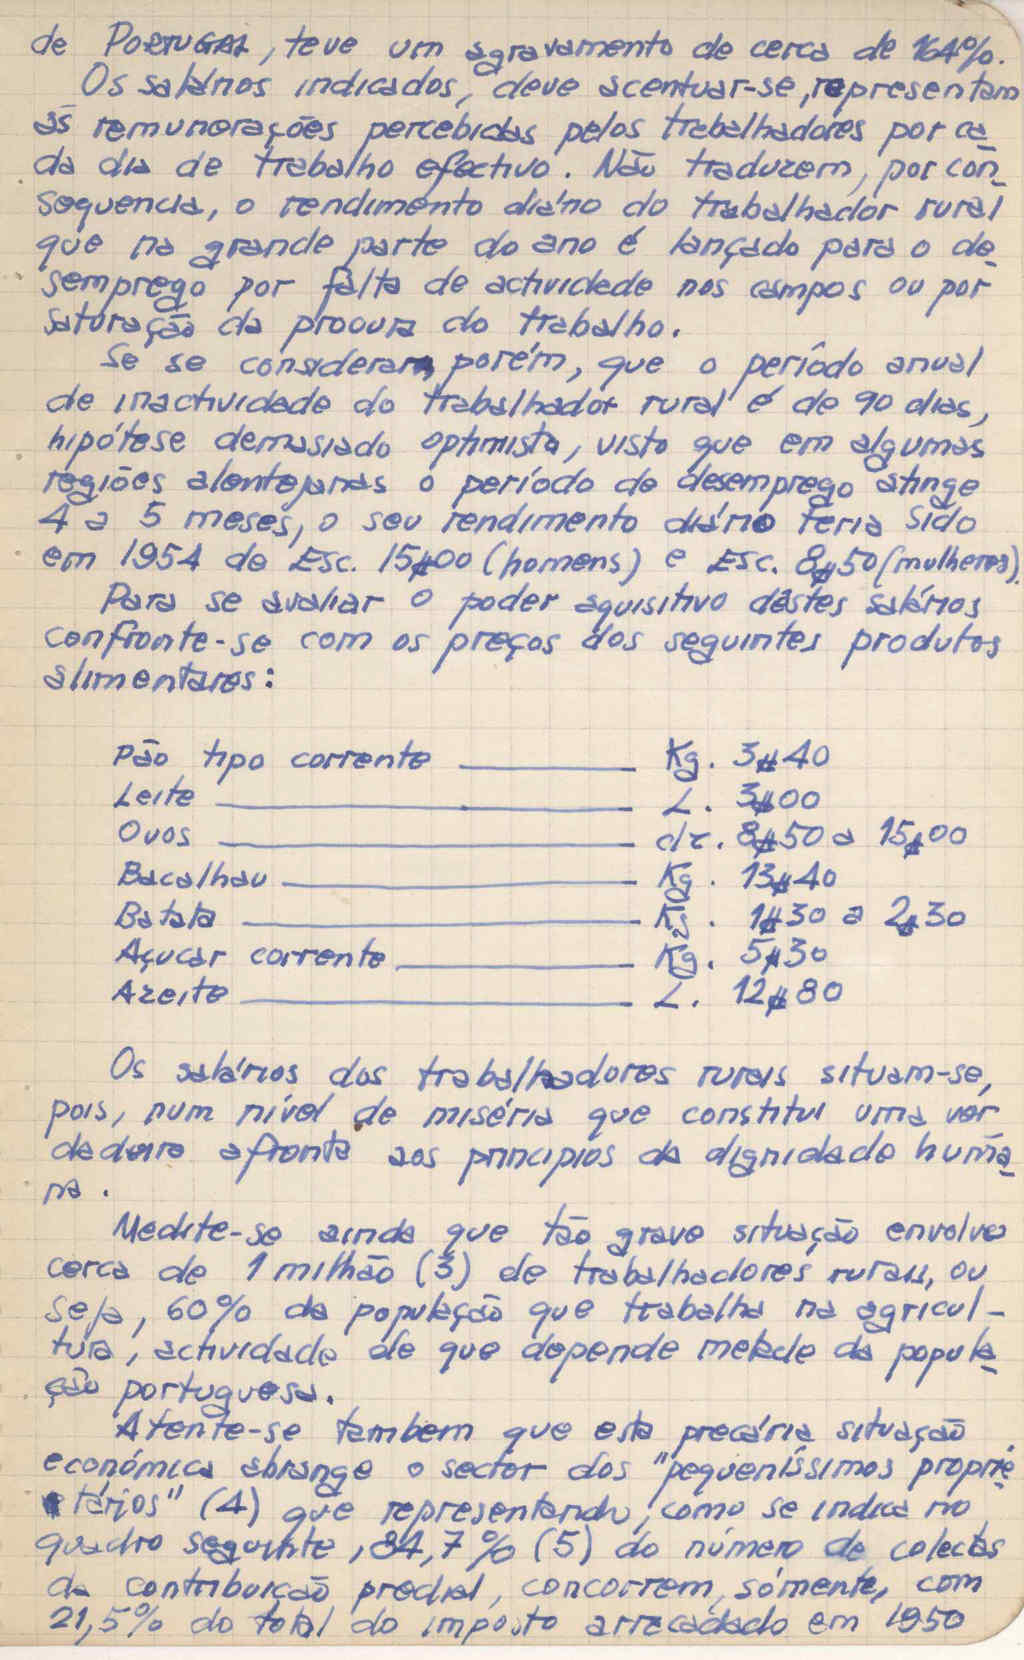 de PORTUGAL, teve um agravamento de cerca de 164%.
Os salários indicados, deve acentuar-se, representam
as remunerações percebidas pelos trabalhadores por ca
da dia de trabalho efectivo. Não traduzem, por con
sequencia, o rendimento diário do trabalhador rural
que na grande parte do ano é lançado para o de
semprego por falta de actividade nos campos ou por
saturação da procura do trabalho.
Se se considerar, porém, que o período anual
de inactividade do trabalhador rural é de 90 dias,
hipótese demasiado optimista, visto que em algumas
regiões alentejanas o período de desemprego atinge
4 a 5 meses, o seu rendimento diário teria sido
em 1954 de Esc. 15$00 (homens) e Esc. 8$50 (mulheres).
Para se avaliar o poder aquisitivo dêstes salários
confronte-se com os preços dos seguintes produtos
alimentares:
Pão tipo corrente ______ Kg. 3$40
Leite ______ L. 3$00
Ovos ______ dz. 8$50 a 15$00
Bacalhau ______ Kg. 13$40
Batata ______ Kg. 1$30 a 2$30
Açucar corrente ______ Kg. 5$30
Azeite ______ L. 12$80
Os salários dos trabalhadores rurais situam-se,
pois, num nível de miséria que constitui uma ver
dadeira afronta aos principios da dignidade huma
na.
Medite-se ainda que tão grave situação envolve
cerca de 1 milhão (3) de trabalhadores rurais, ou
seja, 60% da população que trabalha na agricul-
tura, actividade de que depende metade da popula
ção portuguesa.
Atente-se tambem que esta precária situação
económica abrange o sector dos "pequeníssimos proprie
tários" (4) que representando, como se indica no
quadro seguinte, 84,7% (5) do número de colectas
da contribuição predial, concorrem, sómente, com
21,5% do total do imposto arrecadado em 1950